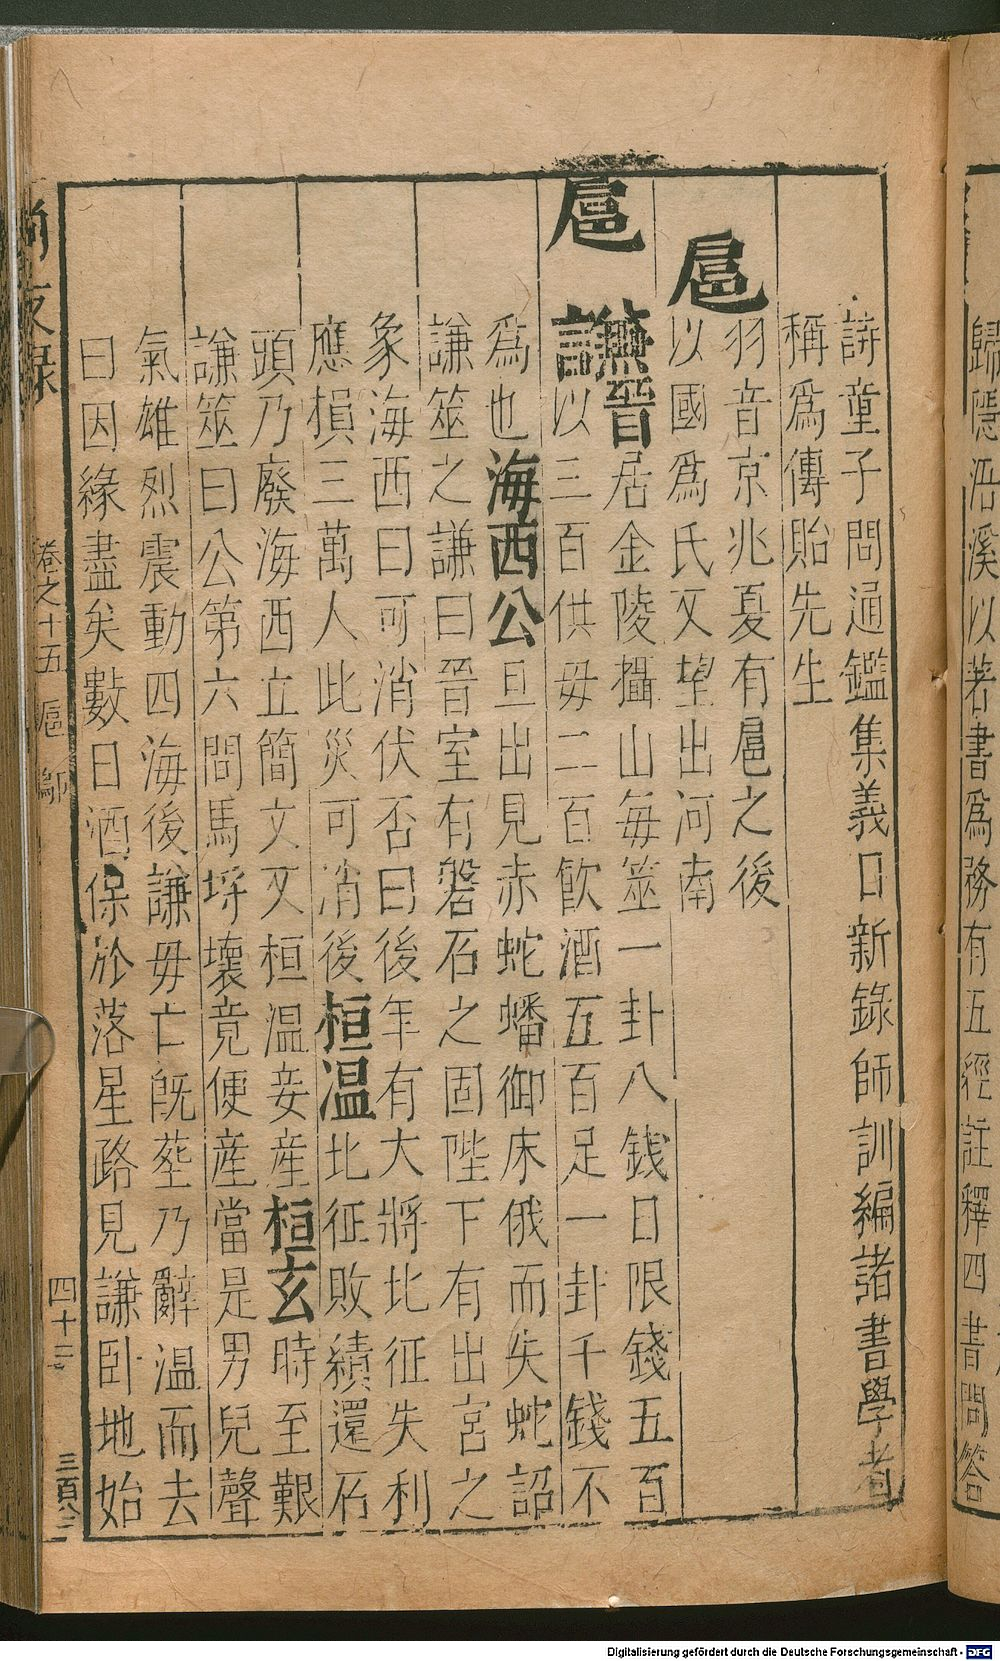 歸隠浯溪以若書為務有五經註釋四書問答
詩童子問通鑑集義日新錄師訓編諸書學者
稱為傳貽先生
扈
羽音京兆夏有扈之後
以國為氏又望出河南
扈謙
晉居金陵攝山毎筮一卦八錢日限錢五百
以三百供毋二百飲酒五百足一卦千錢不
為也海西公旦出見赤蛇蟠御床俄而失蛇詔
謙筮之謙曰晉室有磐石之固陛下有出宮之
象海西曰可消伏否曰後年有大將北征失利
應損三萬人此災可消後桓温北征敗績還石
頭乃廢海西立簡文又桓温妾産桓玄時至艱
謙筮曰公第六問馬埒壞竟便産當是男兒聲
氣雄烈震動四海後謙毋亡旣塟乃辭温而去
曰因緣盡矣數日酒保於落星路見謙卧地始
卷之十五 扈 四十二
Digitalisierung gefördert durch die Deutsche Forschungsgemeinschaft - DFG